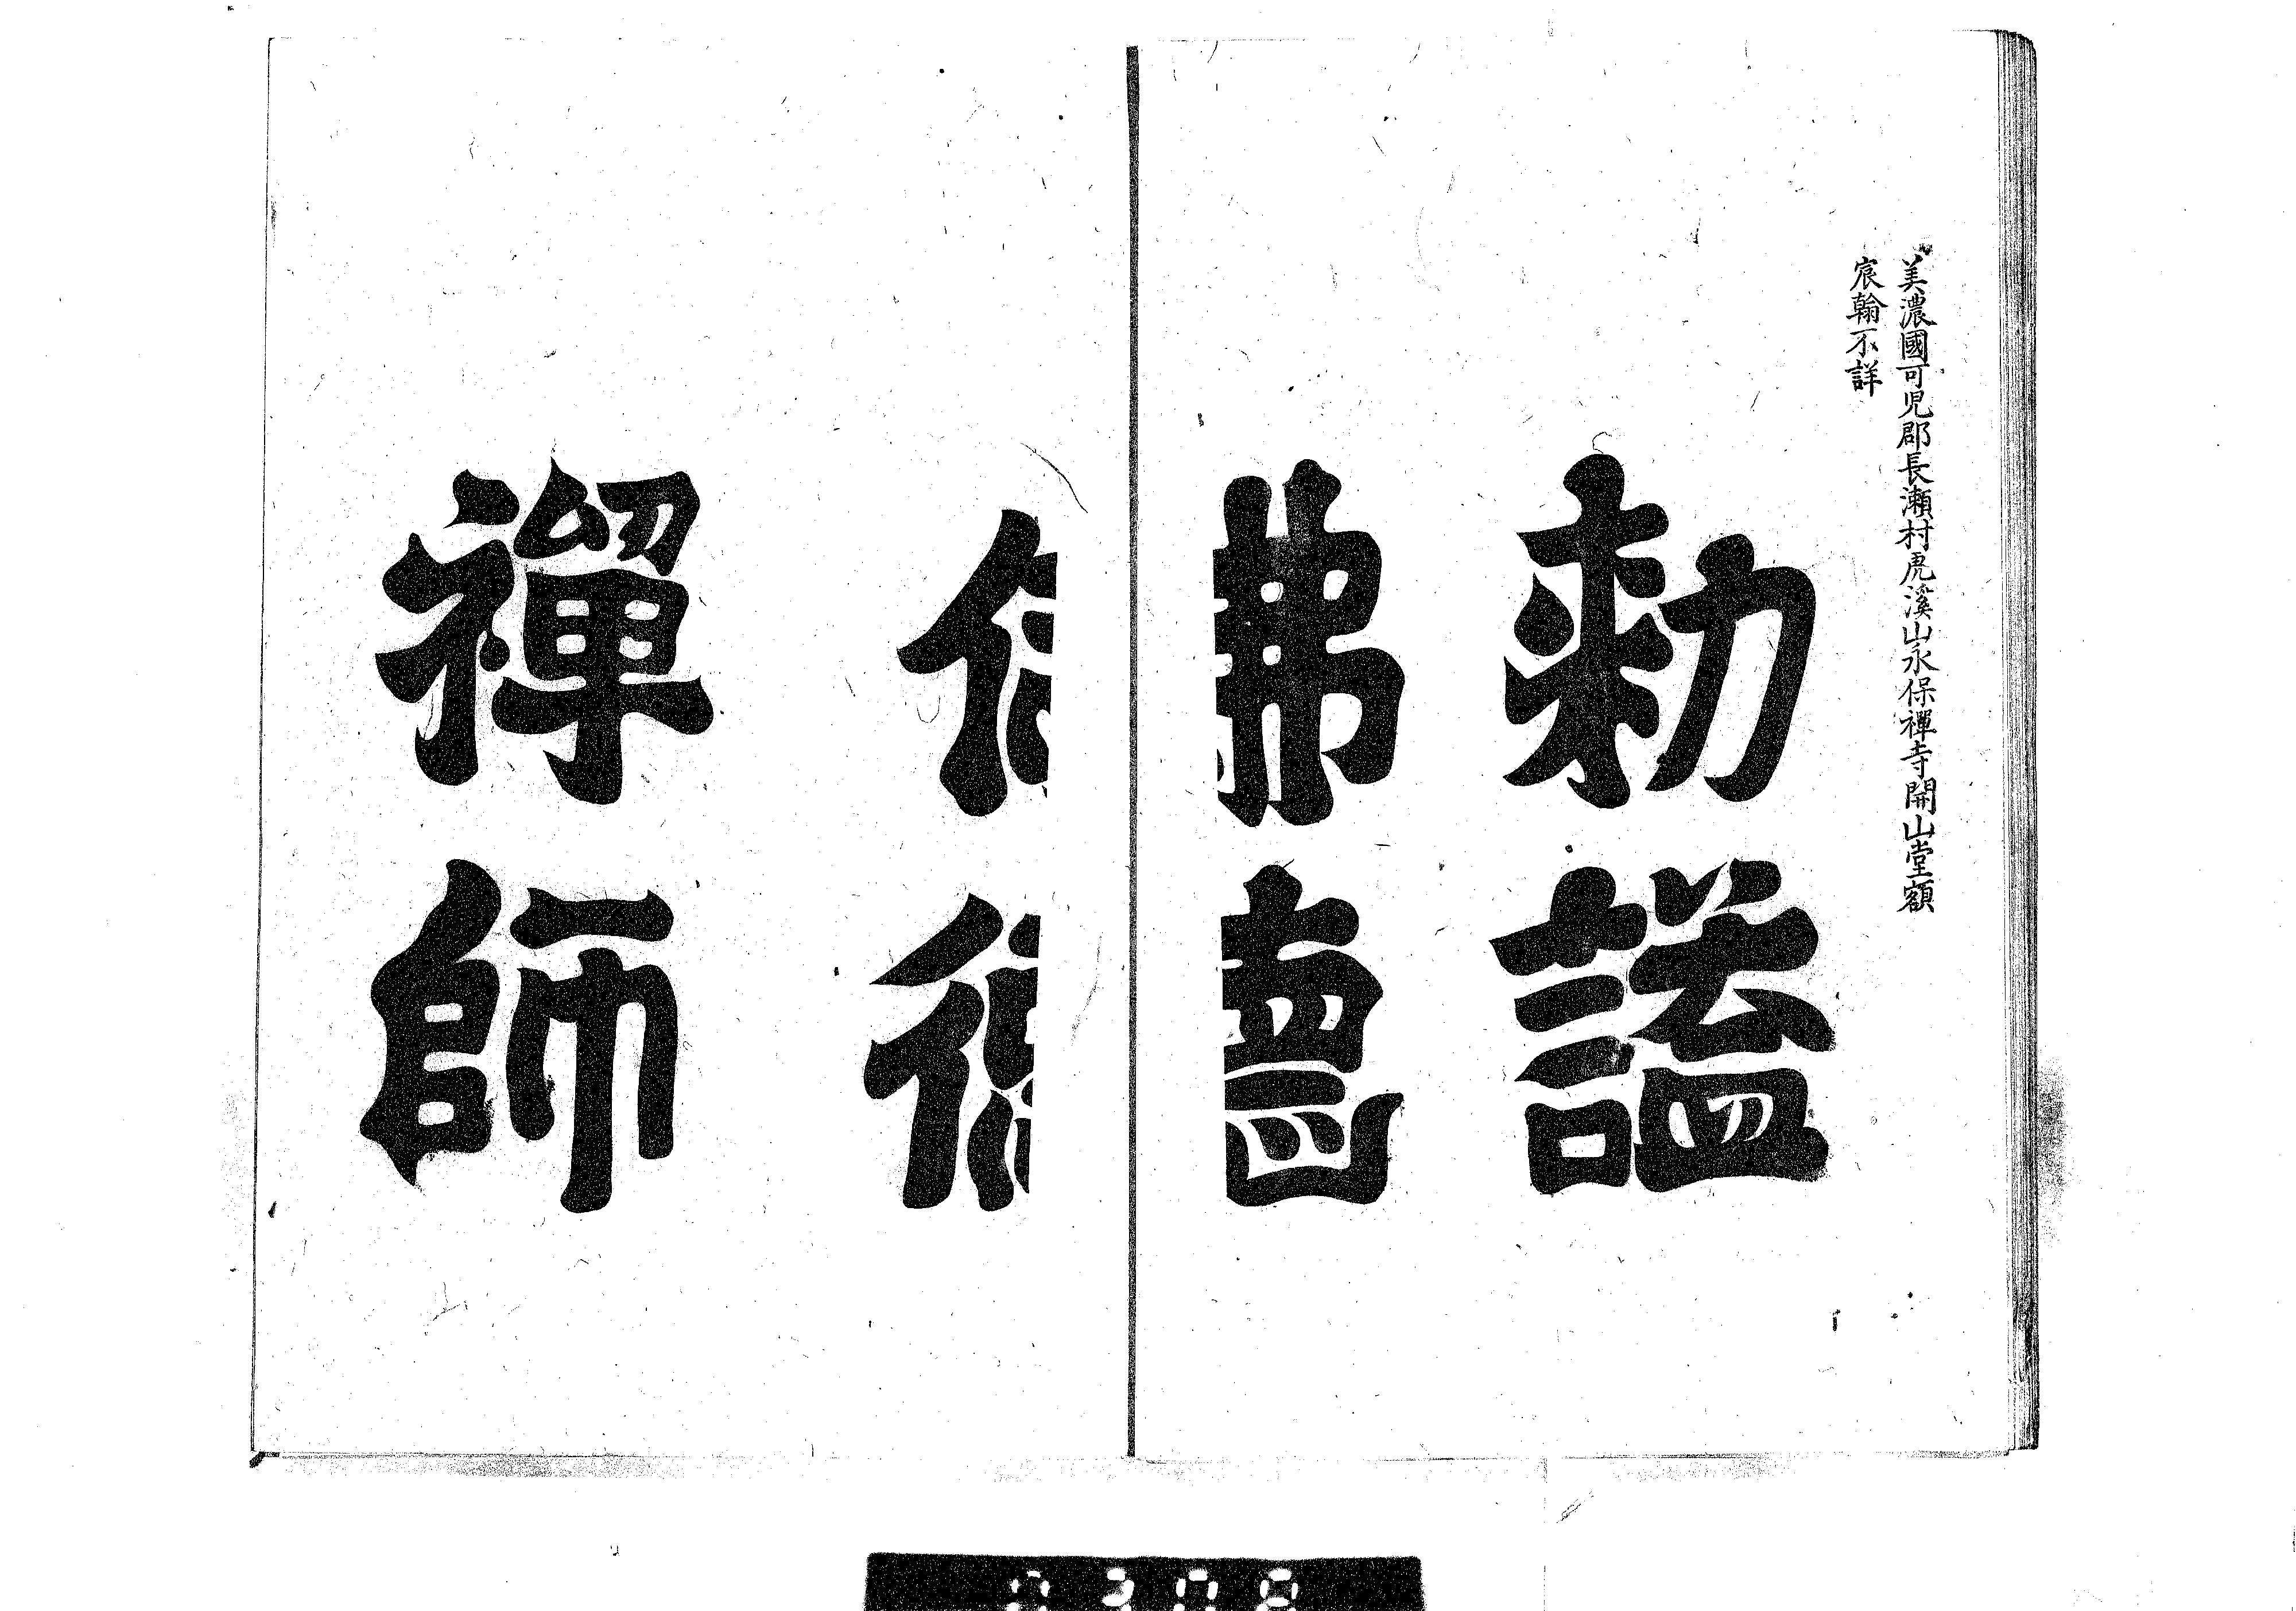 美濃國可児郡長瀬村虎溪山永保禪寺開山堂額
宸翰不詳
勑諡
佛德
禪師